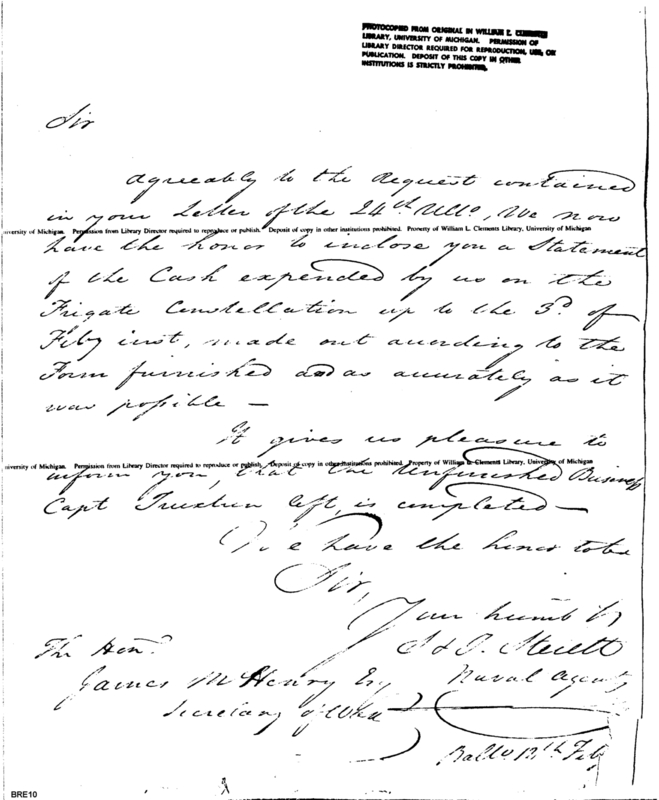 PHOTOCOPIED FROM ORIGINAL IN WILLIAM L. CLEMENTS
LIBRARY, UNIVERSITY OF MICHIGAN. PERMISSION OF
LIBRARY DIRECTOR REQUIRED FOR REPRODUCTION, USE, OR
PUBLICATION. DEPOSIT OF THIS COPY IN OTHER
INSTITUTIONS IS STRICTLY PROHIBITED.
Sir
Agreeably to the Request contained
in your Letter of the 24th Ullo, We now
niversity of Michigan. Permission from Library Director required to reproduce or publish. Deposit of copy in other institutions prohibited. Property of William L. Clements Library, University of Michigan
have the honor to inclose you a Statement
of the Cash expended by us on the
Frigate Constellation up to the 3d of
Feby inst, made out according to the
Form furnished and as accurately as it
was possible —
It gives us pleasure to
niversity of Michigan. Permission from Library Director required to reproduce or publish. Deposit of copy in other institutions prohibited. Property of William L. Clements Library, University of Michigan
inform you, that the Unfinished Business
Capt Truxtun left, is completed —
We have the honor to be
Sir,
Your humb
S & J. Sterett
Naval Agents
The Honl
James McHenry Esq
Secretary of War
Balto 12th Feby
BRE10